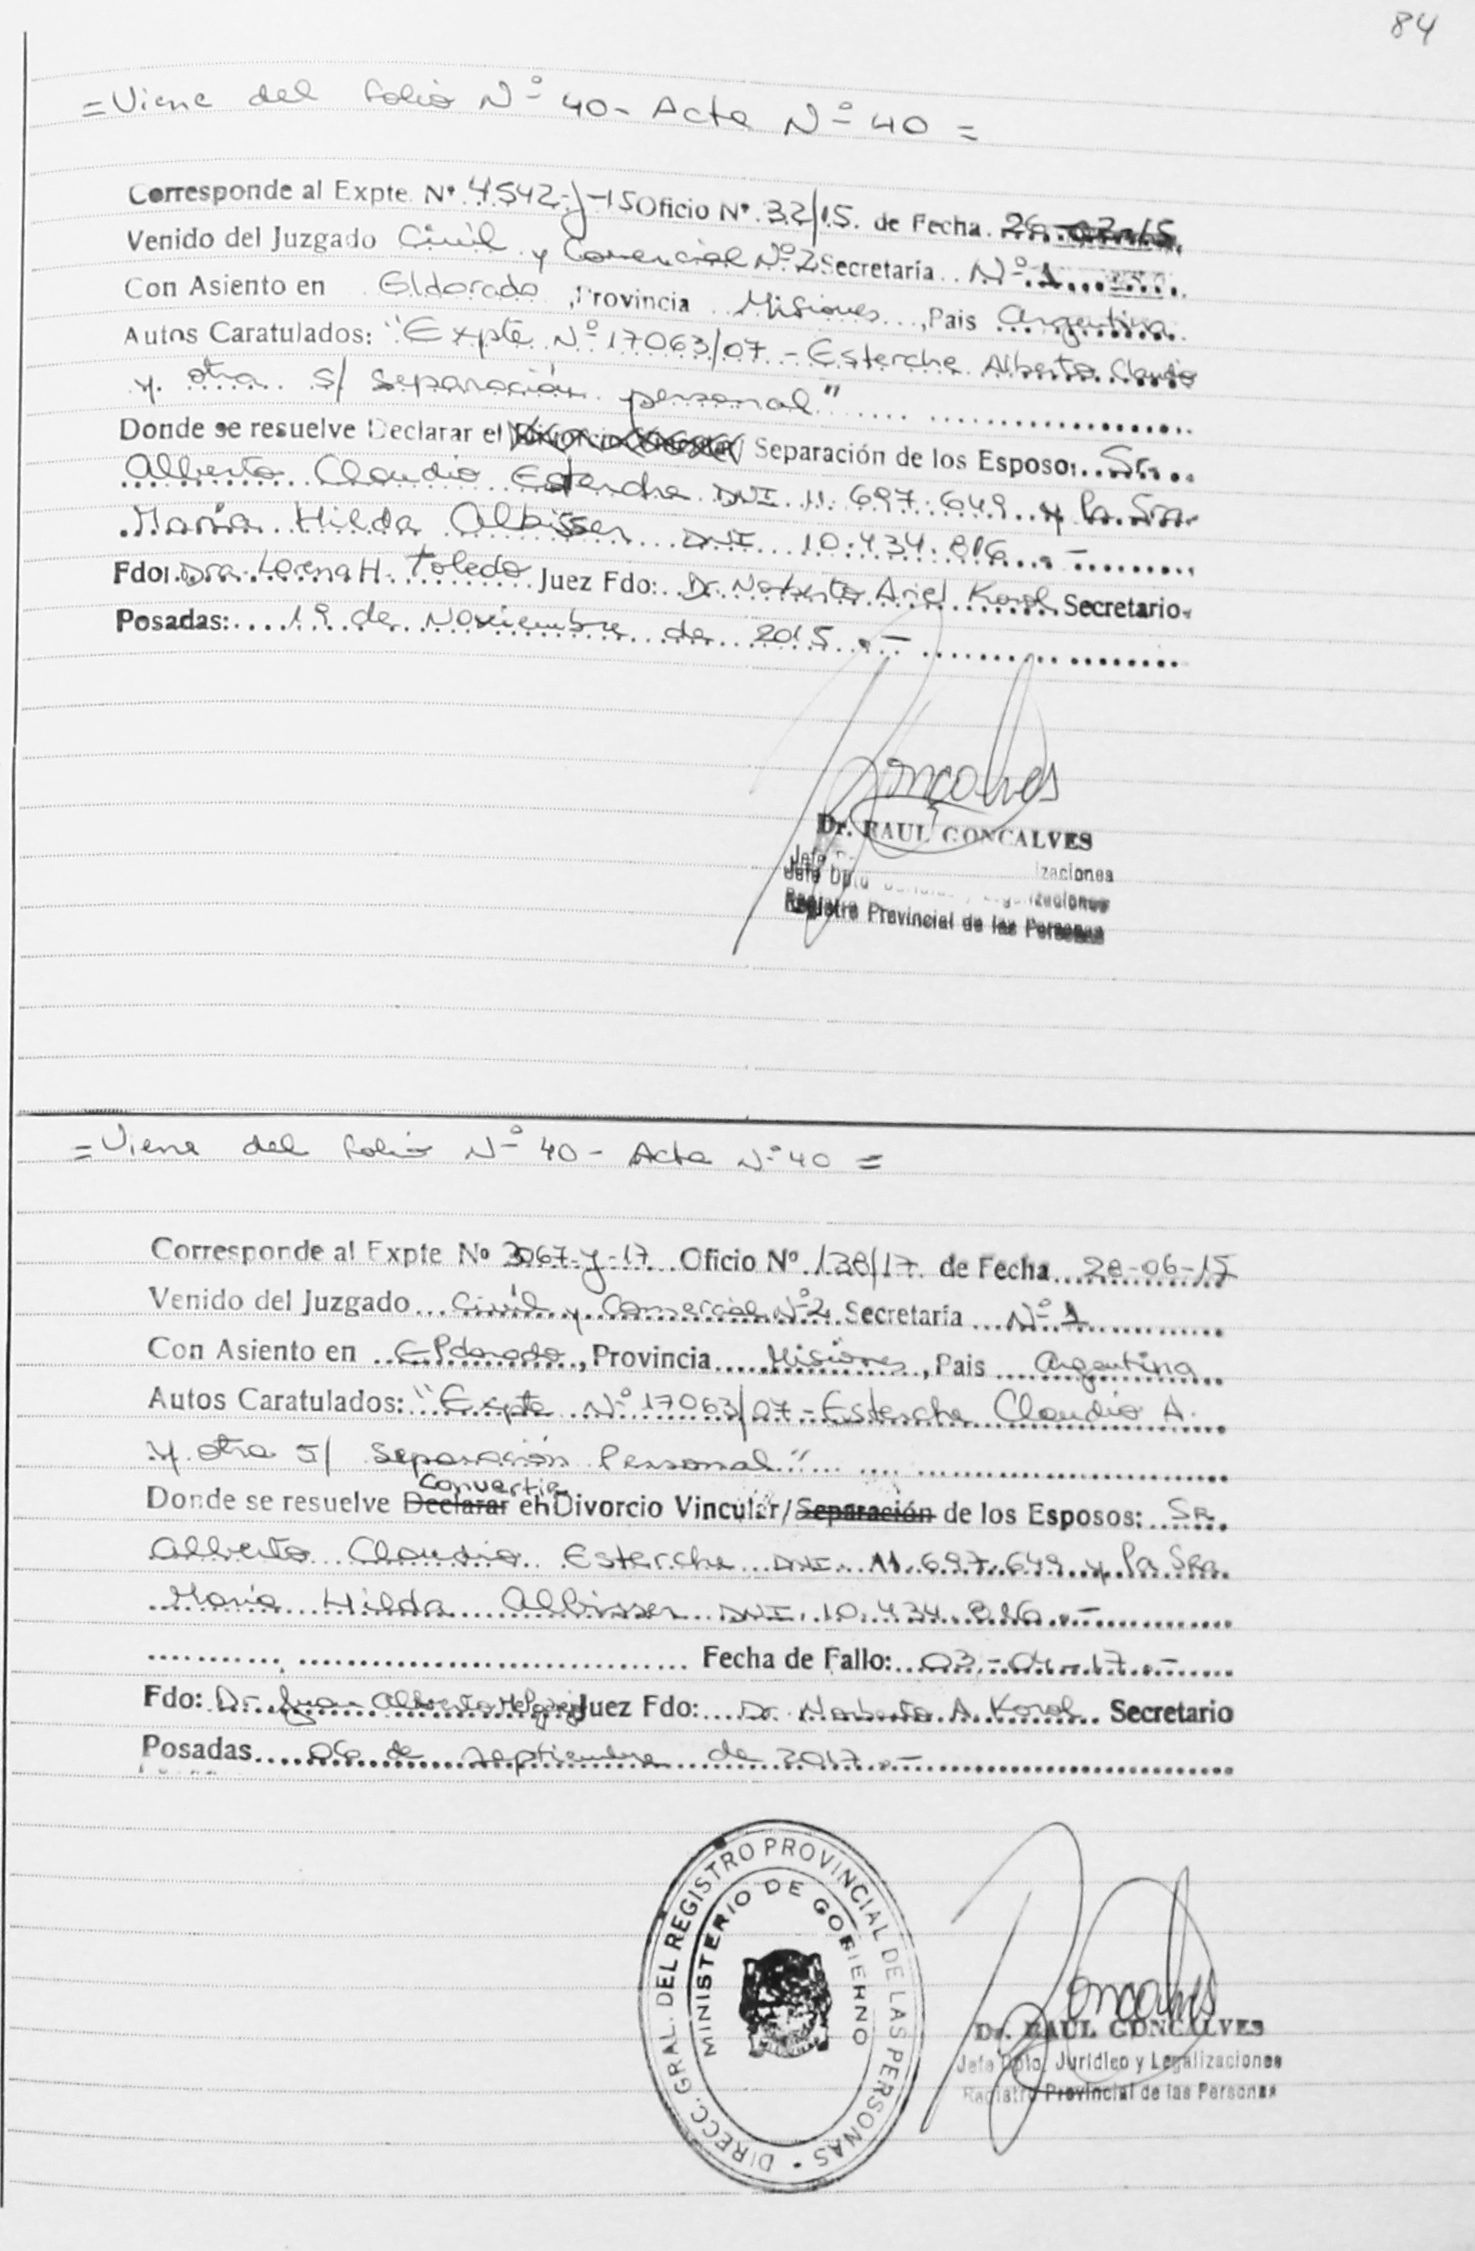 84
= Viene del folio Nº 40 - Acta Nº 40 =
Corresponde al Expte. Nº 4542-y-15 Oficio Nº 32/15. de Fecha 26-02-15
Venido del Juzgado Civil y Comercial Nº 2 Secretaría Nº 1
Con Asiento en Eldorado, Provincia Misiones, Pais Argentina
Autos Caratulados: "Expte Nº 17063/07 - Esterche Alberto Claudio
y otra s/ separación personal"
Donde se resuelve Declarar el Divorcio Vincular / Separación de los Esposos: Sr.
Alberto Claudio Esterche DNI 11.697.649 y la Sra.
María Hilda Albisser DNI 10.434.816.-
Fdo: Dra. Lorena H. Toledo Juez Fdo: Dr. Norberto Ariel Korol Secretario.
Posadas: 19 de Noviembre de 2015.-
Goncalves
Dr. RAUL GONCALVES
Jefe Dpto. Legalizaciones
Registro Provincial de las Personas
= Viene del folio Nº 40 - Acta Nº 40 =
Corresponde al Expte Nº 3067-y-17 Oficio Nº 138/17 de Fecha 28-06-17
Venido del Juzgado Civil y Comercial Nº 2 Secretaría Nº 1
Con Asiento en Eldorado, Provincia Misiones, Pais Argentina
Autos Caratulados: "Expte Nº 17063/07 - Esterche Claudio A.
y otra s/ Separación Personal"
Convertir
Donde se resuelve Declarar en Divorcio Vincular / Separación de los Esposos: Sr.
Alberto Claudio Esterche DNI 11.697.649 y la Sra.
María Hilda Albisser DNI 10.434.816.-
Fecha de Fallo: 03-04-17.-
Fdo: Dr. Juan Alberto Juez Fdo: Dr. Norberto A. Korol Secretario
Posadas 06 de septiembre de 2017.-
DIRECC. GRAL. DEL REGISTRO PROVINCIAL DE LAS PERSONAS
MINISTERIO DE GOBIERNO
Goncalves
Dr. RAUL GONCALVES
Jefe Dpto. Jurídico y Legalizaciones
Registro Provincial de las Personas